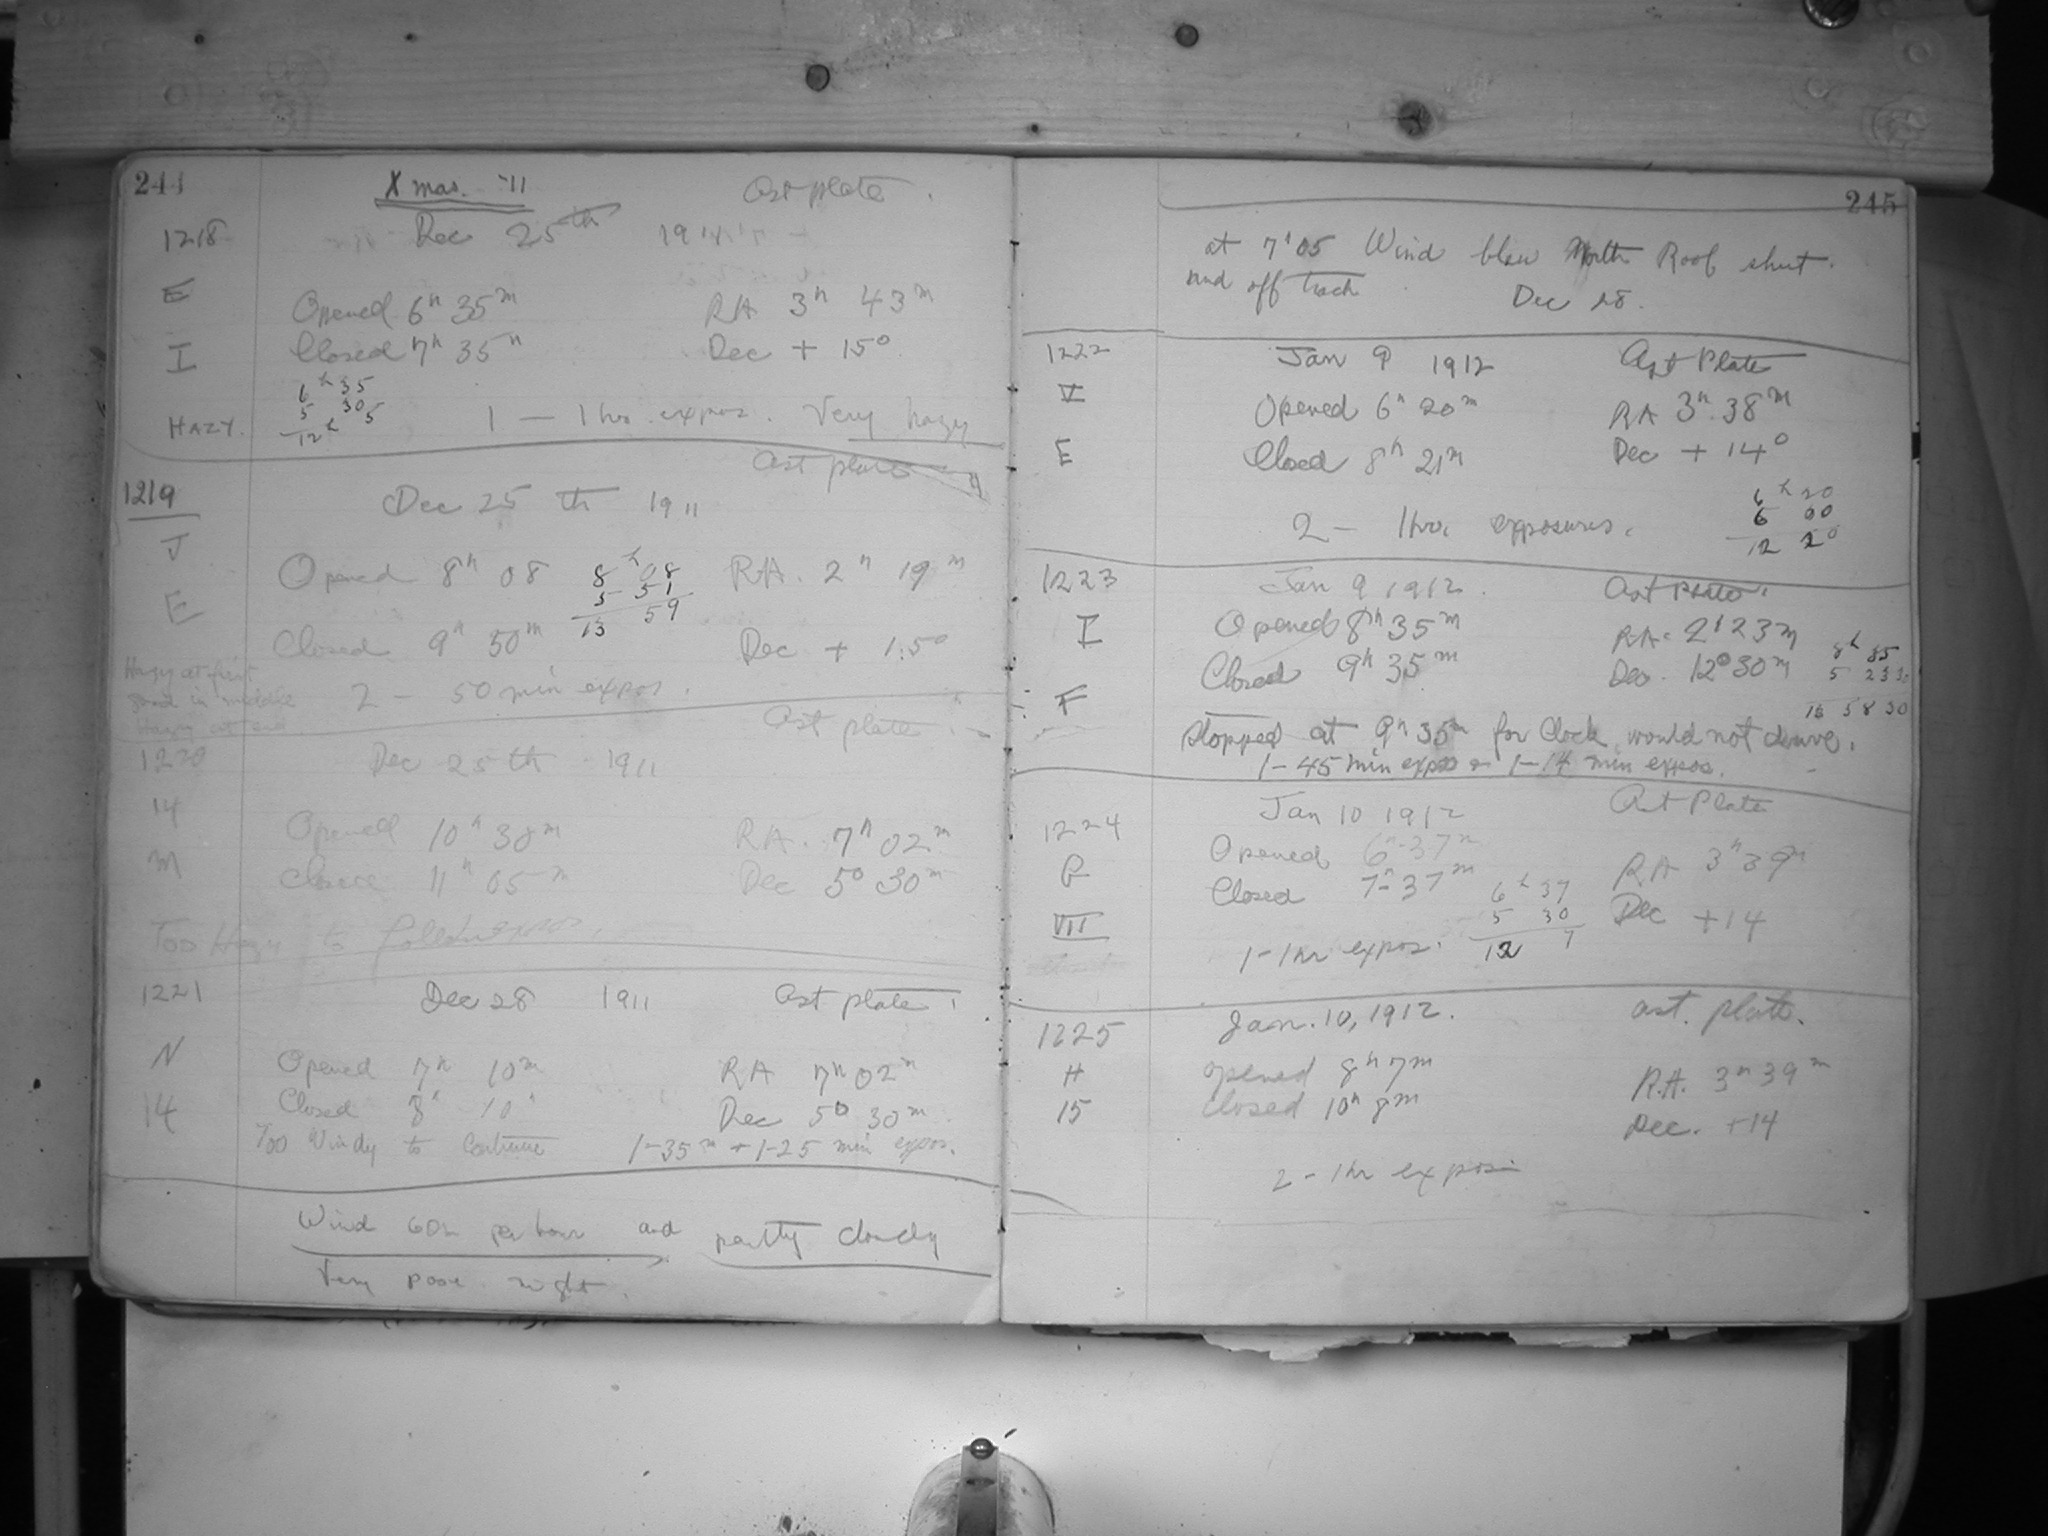 244
Xmas. '11 Ast plate.
1218 Dec 25th 1911
E Opened 6h 35m RA 3h 43m
I Closed 7h 35m Dec + 15°
6h 35
5 30
12h 5
HAZY. 1 — 1 hr. expos. Very hazy
Ast plate
1219 Dec 25th 1911
J
Opened 8h 08 RA. 2h 19m
8h 08
5 51
13 59
E
Closed 9h 50m Dec + 15°
Hazy at first
Good in middle
Hazy at end
2 — 50 min expos.
Ast plate.
1220 Dec 25th 1911
14 Opened 10h 30m RA. 7h 02m
M Closed 11h 05m Dec 5° 30m
Too Hazy to follow expos.
1221 Dec 28 1911 Ast plate
N Opened 7h 10m RA 7h 02m
14 Closed 8h 10m Dec 5° 30m
Too Windy to Continue 1-35m + 1-25 min expos.
Wind 60m per hour and partly cloudy
Very poor night.
245
at 7h05 Wind blew North Roof shut.
and off track. Dec 28.
1222 Jan 9 1912 Ast Plate
V Opened 6h 20m RA 3h 38m
E Closed 8h 21m Dec + 14°
2 — 1 hr. exposures.
6h 20
6 00
12 20
1223 Jan 9 1912. Ast Plate.
I Opened 8h 35m RA. 2h23m
Closed 9h 35m Dec. 12° 30m
8h 35
5 23 30
58 30
F
Stopped at 9h 35m for Clock would not drive.
1-45 min expos + 1-14 min expos.
1224 Jan 10 1912 Ast Plate
Opened 6h-37m RA 3h 39m
G Closed 7h-37m Dec +14
VII
6h 37
5 30
12 7
1-1hr expos.
1225 Jan. 10, 1912. ast. plate.
H opened 8h 7m R.A. 3h 39m
15 closed 10h 8m Dec. +14
2-1hr expos